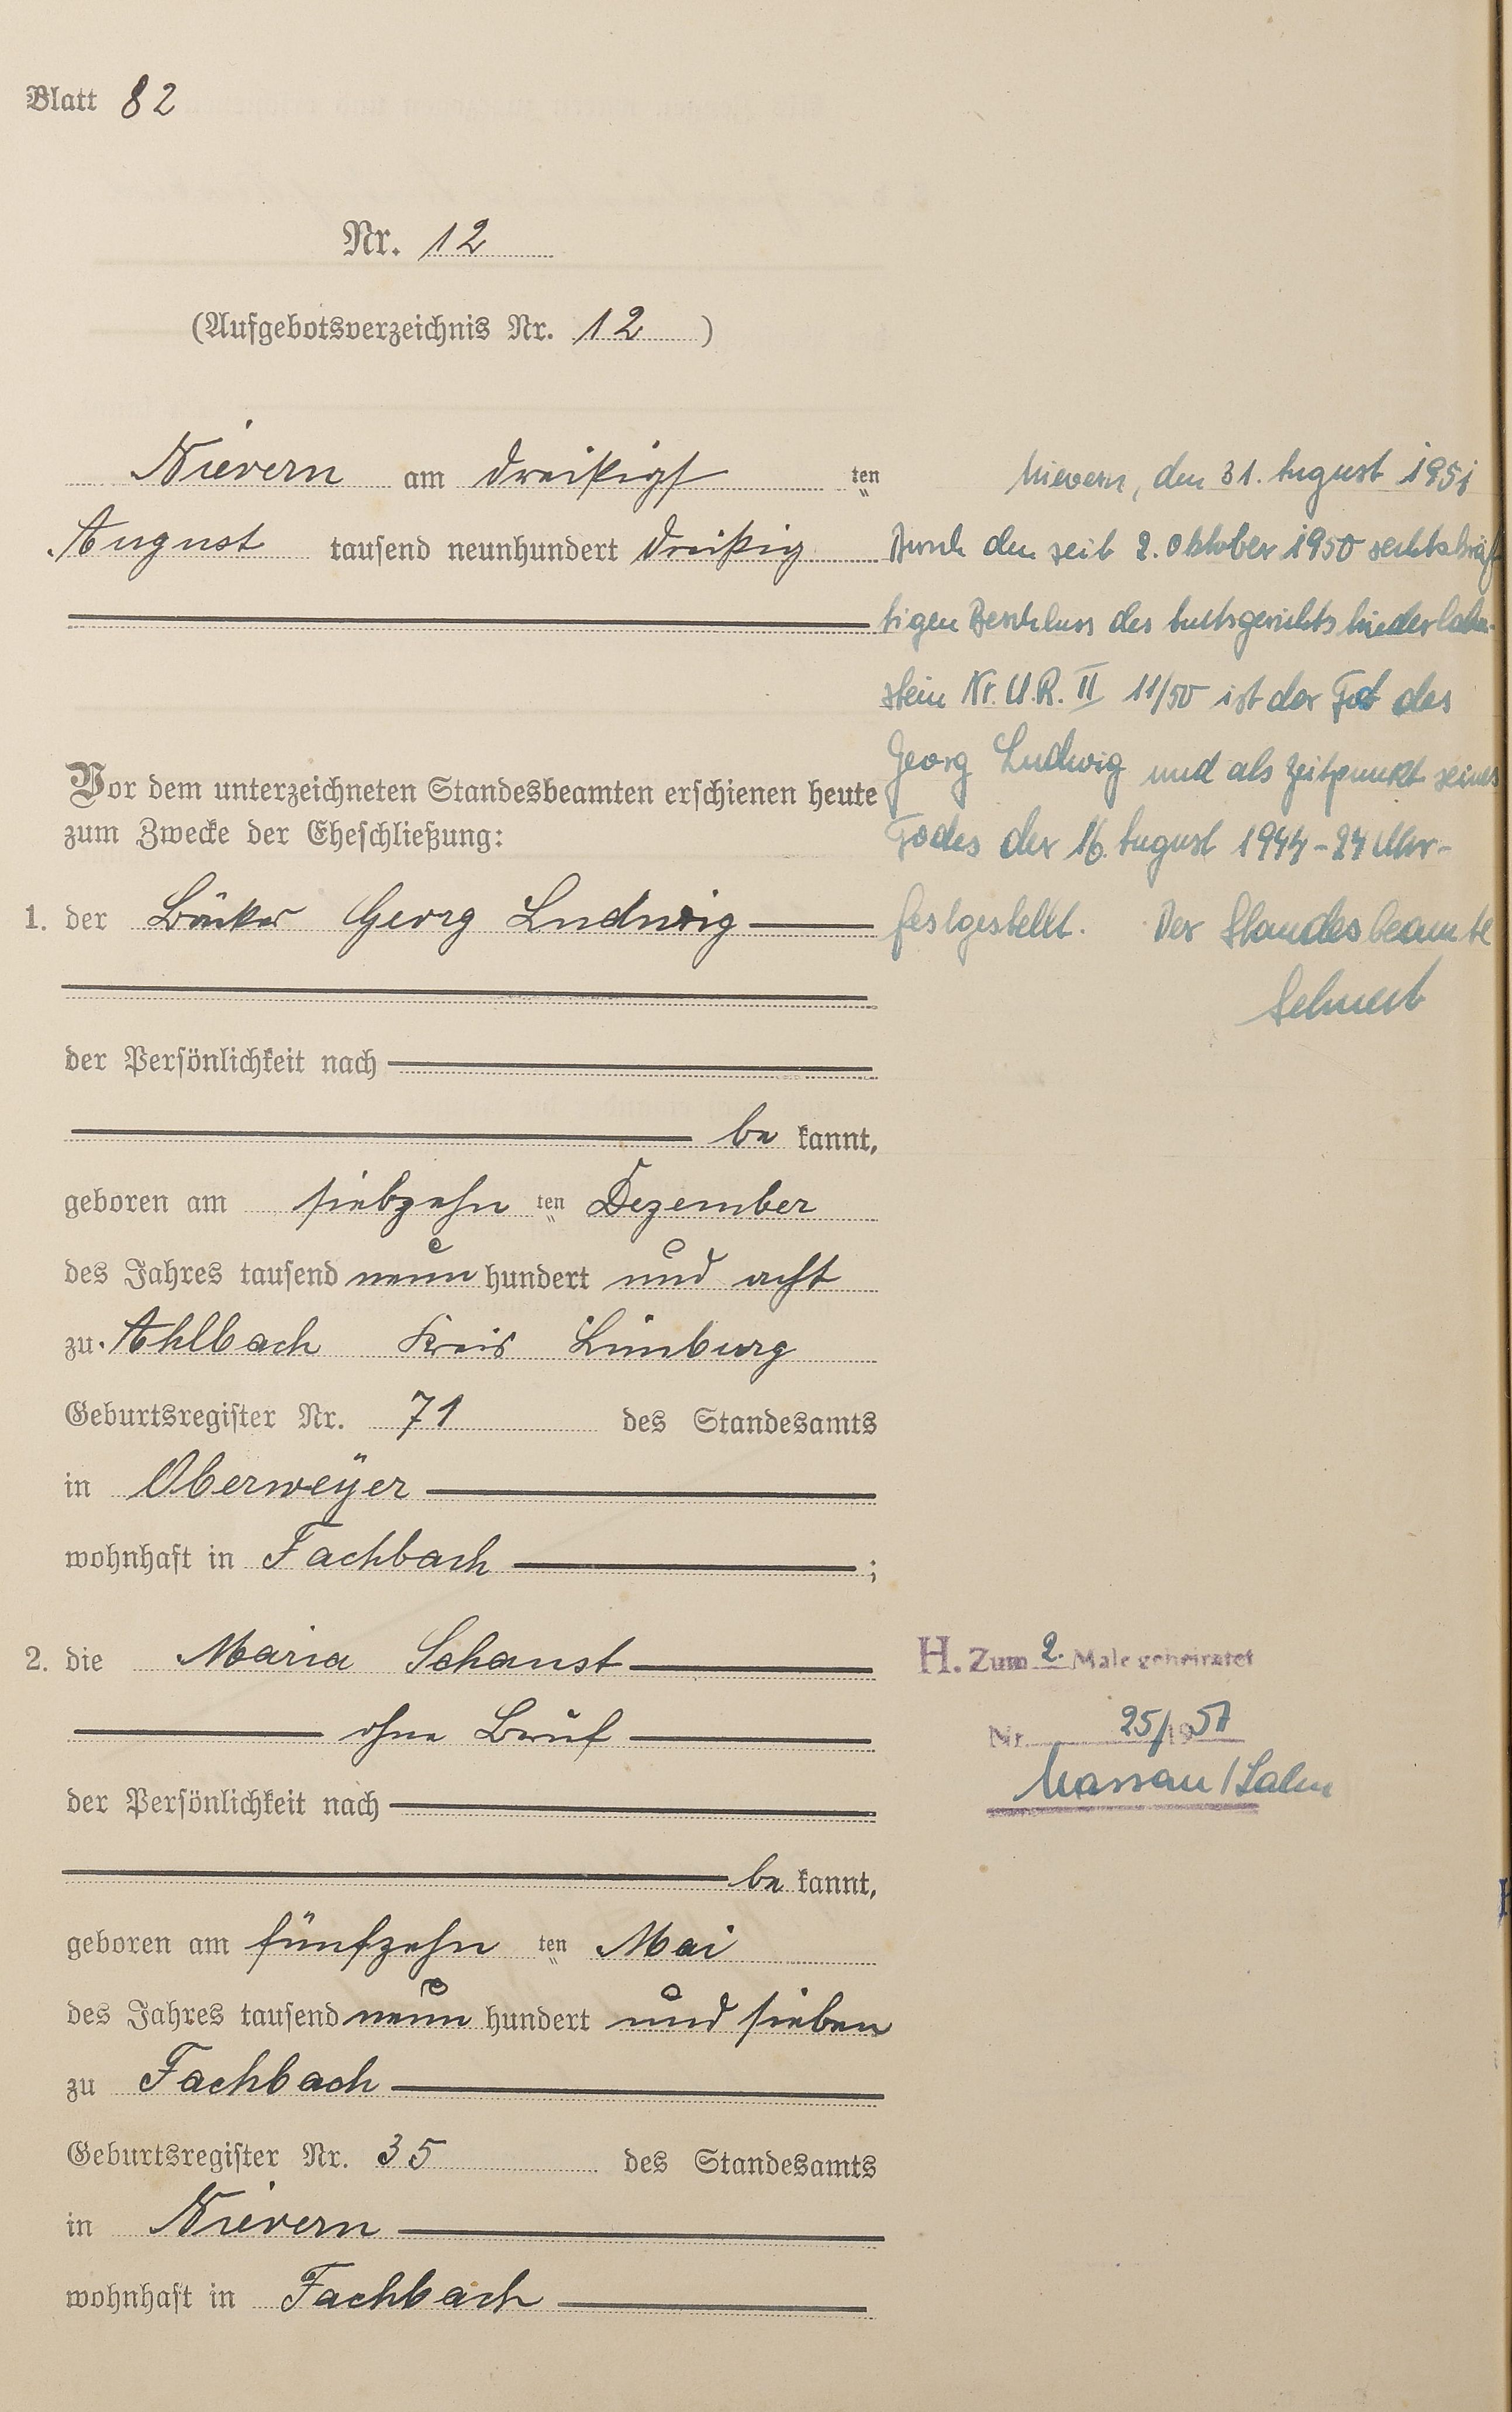 Blatt 82
Nr. 12
(Aufgebotsverzeichnis Nr. 12 )
Nievern am dreißigs ten
August tausend neunhundert dreißig
Vor dem unterzeichneten Standesbeamten erschienen heute
zum Zwecke der Eheschließung:
1. der Bäcker Georg Ludwig
der Persönlichkeit nach
be kannt,
geboren am siebzehn ten Dezember
des Jahres tausend neun hundert und acht
zu Ahlbach Kreis Limburg
Geburtsregister Nr. 71 des Standesamts
in Oberweyer
wohnhaft in Fachbach ;
2. die Maria Schaust
ohne Beruf
der Persönlichkeit nach
be kannt,
geboren am fünfzehn ten Mai
des Jahres tausend neun hundert und sieben
zu Fachbach
Geburtsregister Nr. 35 des Standesamts
in Nievern
wohnhaft in Fachbach
Nievern, den 31. August 1951
Durch den seit 2. Oktober 1950 rechtskräf
tigen Beschluss des Amtsgerichts Niederlahn-
stein Nr. U.R. II 11/50 ist der Tod des
Georg Ludwig und als Zeitpunkt seines
Todes der 16. August 1944 - 24 Uhr -
festgestellt. Der Standesbeamte
H. Zum 2. Male geheiratet
Nr. 25/1957
Nassau / Lahn